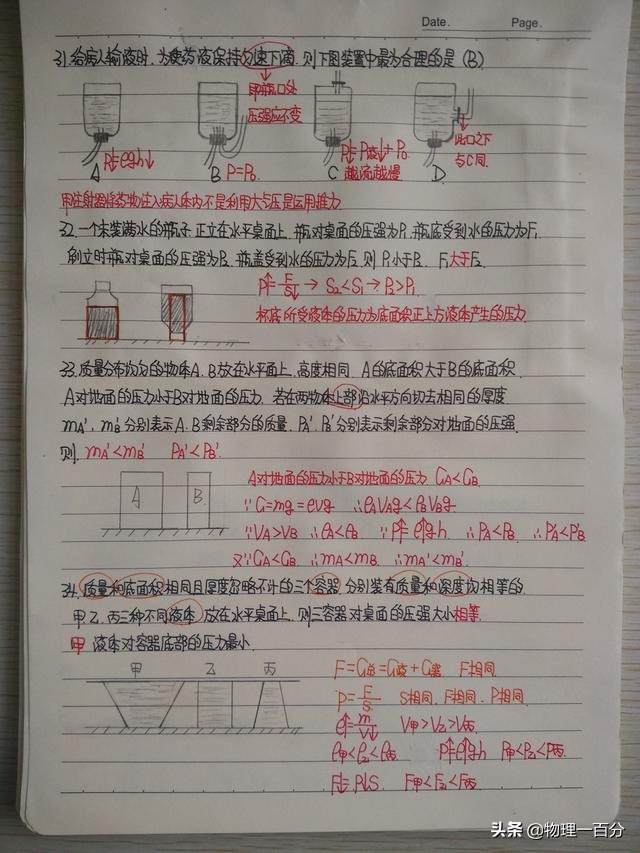 Date.   Page.
31. 给病人输液时，为使药液保持匀速下滴，则下图装置中最为合理的是（B）
即瓶口处
压强应不变
A B C D
P↓=ρgh↓
P=P₀
P↓=P液↓+P₀
越流越慢
此口之下
与C同.
用注射器将药物注入病人体内不是利用大气压是运用推力
32. 一个未装满水的瓶子正立在水平桌面上，瓶对桌面的压强为P₁，瓶底受到水的压力为F₁，
倒立时瓶对桌面的压强为P₂，瓶盖受到水的压力为F₂，则P₁小于P₂ F₁大于F₂
P↑=F/S↓→S₂<S₁→P₂>P₁
杯底所受液体的压力为底面积正上方液体产生的压力
33. 质量分布均匀的物体A、B放在水平面上，高度相同，A的底面积大于B的底面积.
A对地面的压力小于B对地面的压力，若在两物体上部沿水平方向切去相同的厚度
mA′、mB′分别表示A、B剩余部分的质量，PA′、PB′分别表示剩余部分对地面的压强
则. mA′<mB′ PA′<PB′
A B
A对地面的压力小于B对地面的压力 GA<GB
∵G=mg=ρvg ∴ρAVAg<ρBVBg
∵VA>VB ∴ρA<ρB ∵P↑=ρ↑gh ∴PA<PB ∴PA′<PB′
又∵GA<GB ∴mA<mB ∴mA′<mB′
34. 质量和底面积相同且厚度忽略不计的三个容器，分别装有质量和深度均相等的
甲、乙、丙三种不同液体，放在水平桌面上，则三容器对桌面的压强大小相等
甲 液体对容器底部的压力最小
甲 乙 丙
F=G总=G液+G器 F相同
P=F/S S相同，F相同，P相同
ρ↑=m/V↓ V甲>V乙>V丙
ρ甲<ρ乙<ρ丙 P↑=ρ↑gh P甲<P乙<P丙
F↓=P↓S F甲<F乙<F丙
头条 @物理一百分